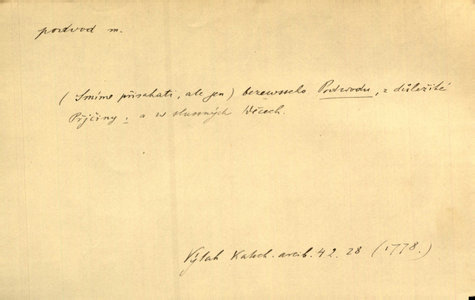 podvod m.
(Smíme přisahati, ale jen) bezewsseho Podwodu, z důležité
Přjčiny, a w slussných Wěcech.
Výtah Katech. arcib. 42. 28 (1778.)